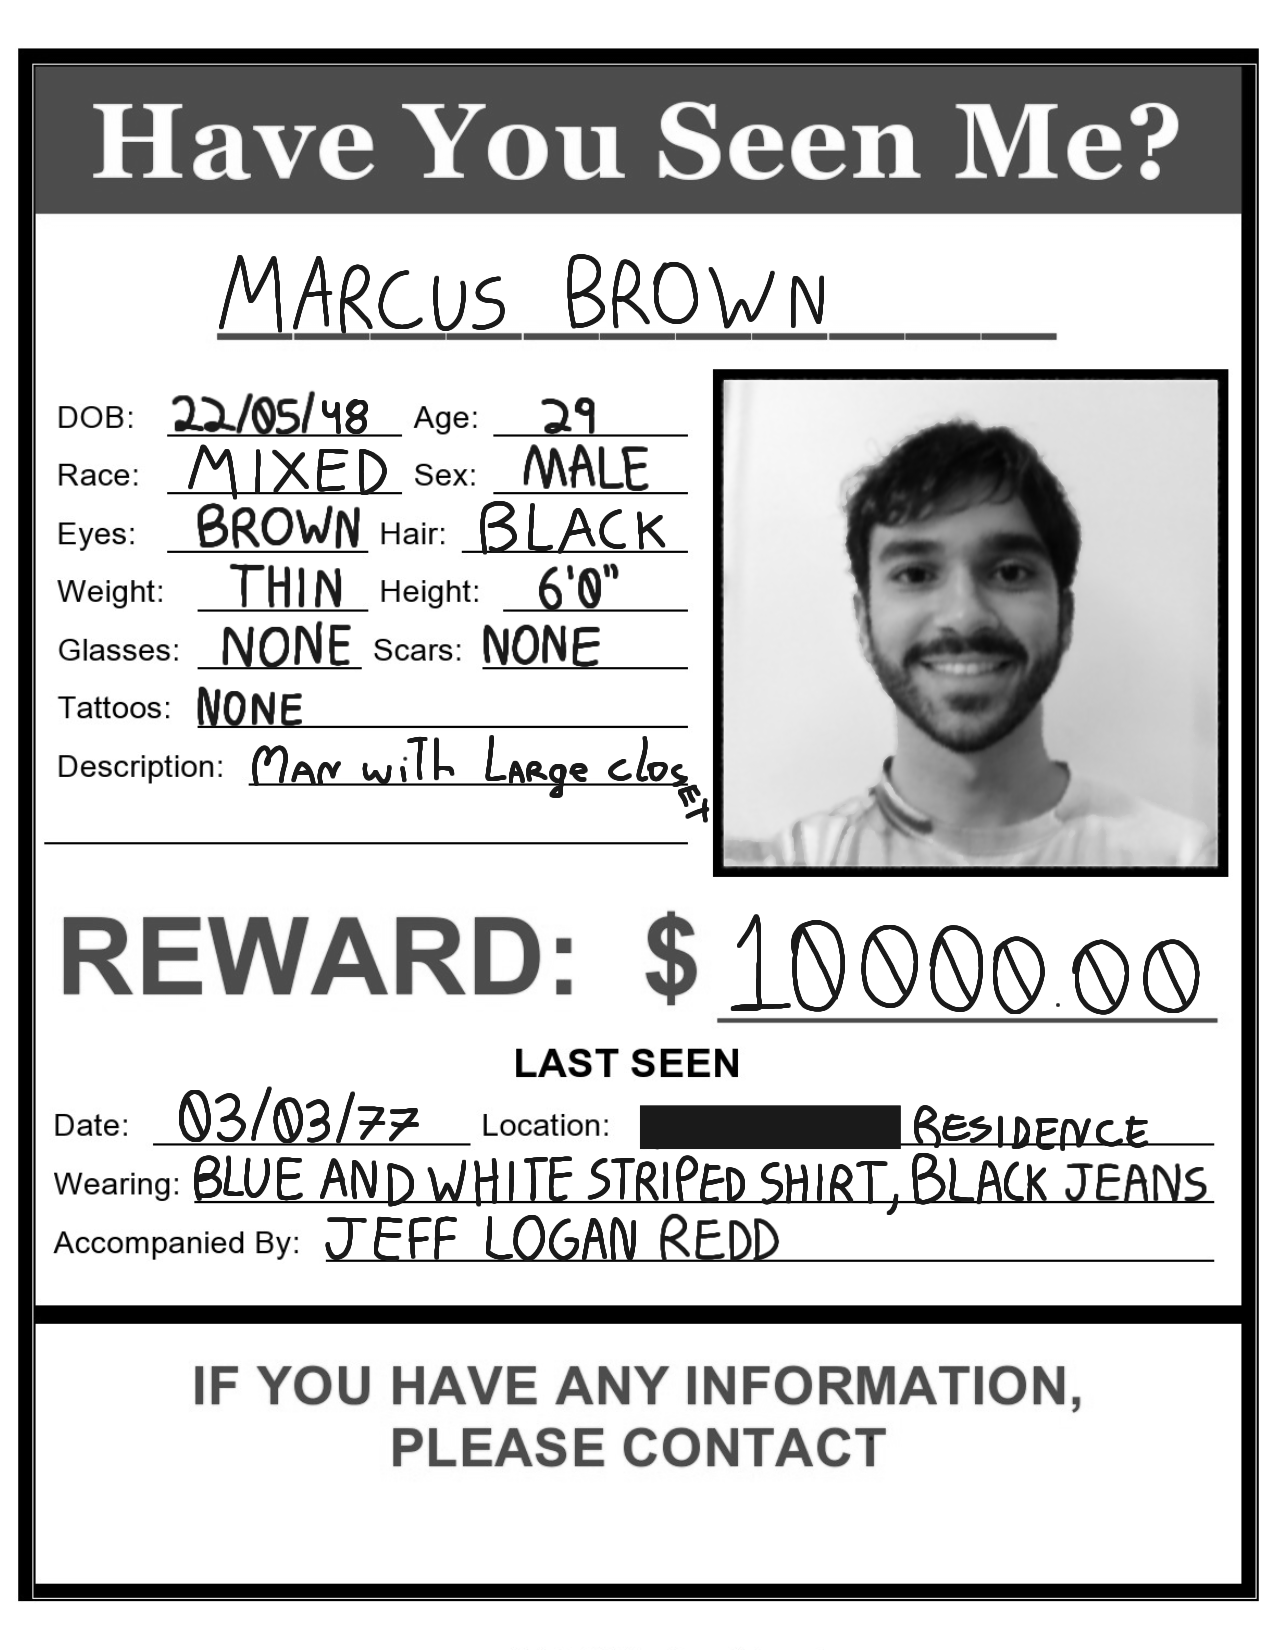 Have You Seen Me?
MARCUS BROWN
DOB: 22/05/48 Age: 29
Race: MIXED Sex: MALE
Eyes: BROWN Hair: BLACK
Weight: THIN Height: 6'0"
Glasses: NONE Scars: NONE
Tattoos: NONE
Description: MAN with LARge closET
REWARD: $ 10000.00
LAST SEEN
Date: 03/03/77 Location: RESIDENCE
Wearing: BLUE AND WHITE STRIPED SHIRT, BLACK JEANS
Accompanied By: JEFF LOGAN REDD
IF YOU HAVE ANY INFORMATION,
PLEASE CONTACT